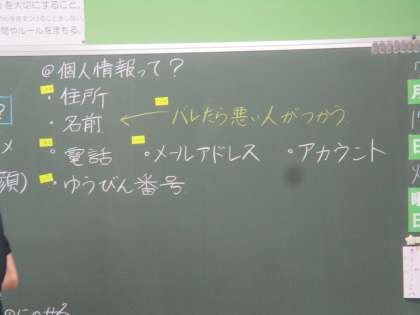 を大切にすること。
問やルールをまもる。
@個人情報って?
・住所
・名前 ← バレたら悪い人がつかう
・電話 ・メールアドレス ・アカウント
・ゆうびん番号
?
メ
頭)
月
日
曜
日